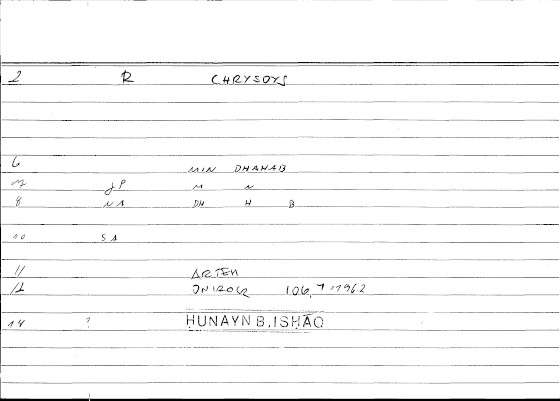 2 R CHRYSOYS
6 MIN DHAHAB
7 JP M N
8 NA DH H B
10 SA
11 ARTEM
12 ONIROCR 106,7 1962
14 ? ḤUNAYN B. ISḤĀQ